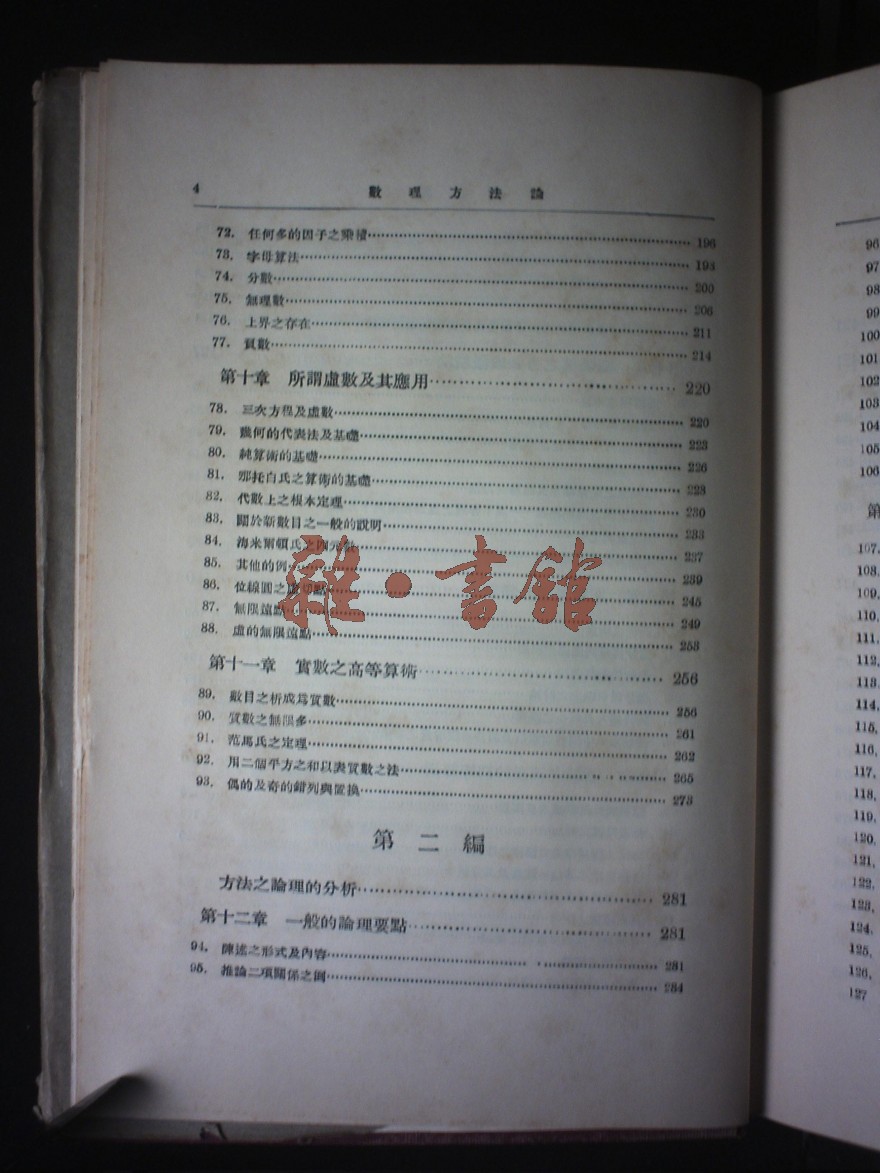 4 數理方法論
72. 任何多的因子之乘積 196
73. 字母算法 198
74. 分數 200
75. 無理數 206
76. 上界之存在 211
77. 負數 214
第十章 所謂虛數及其應用 220
78. 三次方程及虛數 220
79. 幾何的代表法及基礎 223
80. 純算術的基礎 226
81. 邪托白氏之算術的基礎 228
82. 代數上之根本定理 230
83. 關於新數目之一般的說明 233
84. 海米爾頓氏之四元數 237
85. 其他的例 239
86. 位線圓之虛切點 245
87. 無限遠點 249
88. 虛的無限遠點 253
第十一章 實數之高等算術 256
89. 數目之析成爲質數 256
90. 質數之無限多 261
91. 范馬氏之定理 262
92. 用二個平方之和以表質數之法 265
93. 偶的及奇的錯列與置換 273
第二編
方法之論理的分析 281
第十二章 一般的論理要點 281
94. 陳述之形式及內容 281
95. 推論二項關係之例 284
雜·書館
96
97
98
99
100
101
102
103
104
105
106
第
107.
108.
109.
110.
111.
112.
113.
114.
115.
116.
117.
118.
119.
120.
121.
122.
123.
124.
125.
126.
127